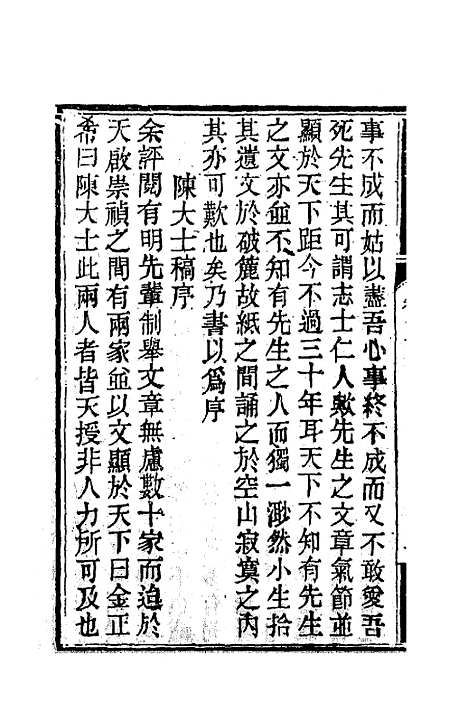 事不成而姑以盡吾心事終不成而又不敢愛吾
死先生其可謂志士仁人歟先生之文章氣節並
顯於天下距今不過三十年耳天下不知有先生
之文亦並不知有先生之人而獨一渺然小生拾
其遺文於破簏故紙之間誦之於空山寂寞之內
其亦可歎也矣乃書以爲序
陳大士稿序
余評閱有明先輩制舉文章無慮數十家而迨於
天啟崇禎之間有兩家並以文顯於天下曰金正
希曰陳大士此兩人者皆天授非人力所可及也